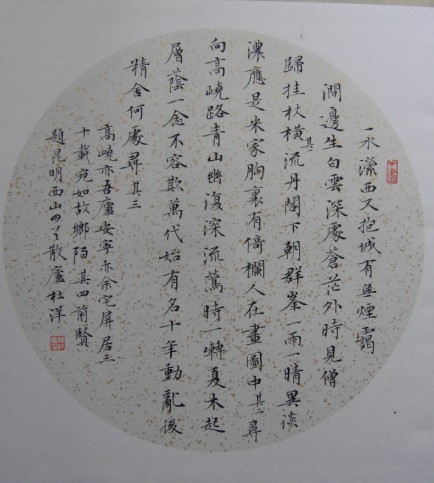 一水瀠西又抱城有無煙靄
澗邊生白雲深處蒼茫外時見僧
歸拄杖橫其一流丹閣下朝群峯一雨一晴異淡
濃應是米家胸裏有倚欄人在畫圖中其二尋
向高嶢路青山幽復深流鶯時一囀夏木起
層蔭一念不容欺萬代始有名十年動亂後
精舍何處尋其三
高嶢亦吾廬安寧亦余宅屏居三
十載宛如故鄉陌其四前賢
題昆明西山四首散廬杜洋